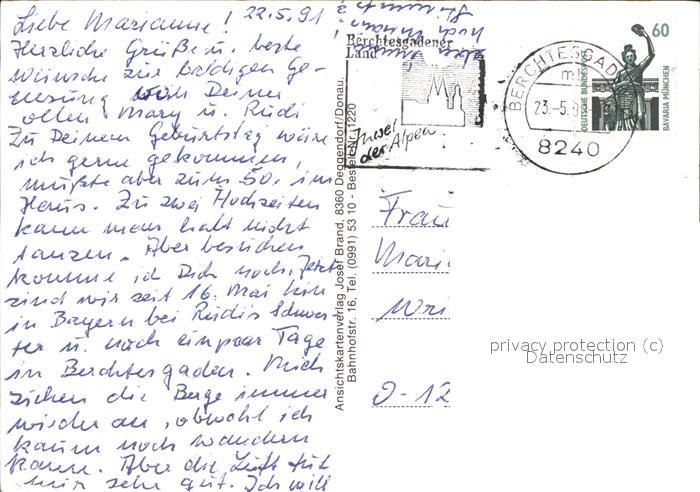 Liebe Marianne! 22.5.91
Herzliche Grüße u. beste
Wünsche zur baldigen Ge-
nesung von Deiner
ollen Mary u. Rudi
Zu Deinem Geburtstag wäre
ich gerne gekommen,
mußte aber zum 50. im
Haus. Zu zwei Hochzeiten
kann man halt nicht
tanzen. Aber besuchen
komme ich Dich noch. Jetzt
sind wir seit 16. Mai hier
in Bayern bei Rudis Schwes-
ter u. noch ein paar Tage
in Berchtesgaden. Mich
ziehen die Berge immer
wieder an, obwohl ich
kaum noch wandern
kann. Aber die Luft tut
mir sehr gut. Ich will
noch
Berchtesgadener
Land
Juwel
der Alpen
BERCHTESGAD
23.-5.9
8240
60
DEUTSCHE BUNDESPOST
BAVARIA MÜNCHEN
Ansichtskartenverlag Josef Brand, 8360 Deggendorf/Donau,
Bahnhofstr. 16, Tel. (0991) 53 10 - Bestell-Nr. 1220
Frau
Mari
Wri
D-12
privacy protection (c)
Datenschutz